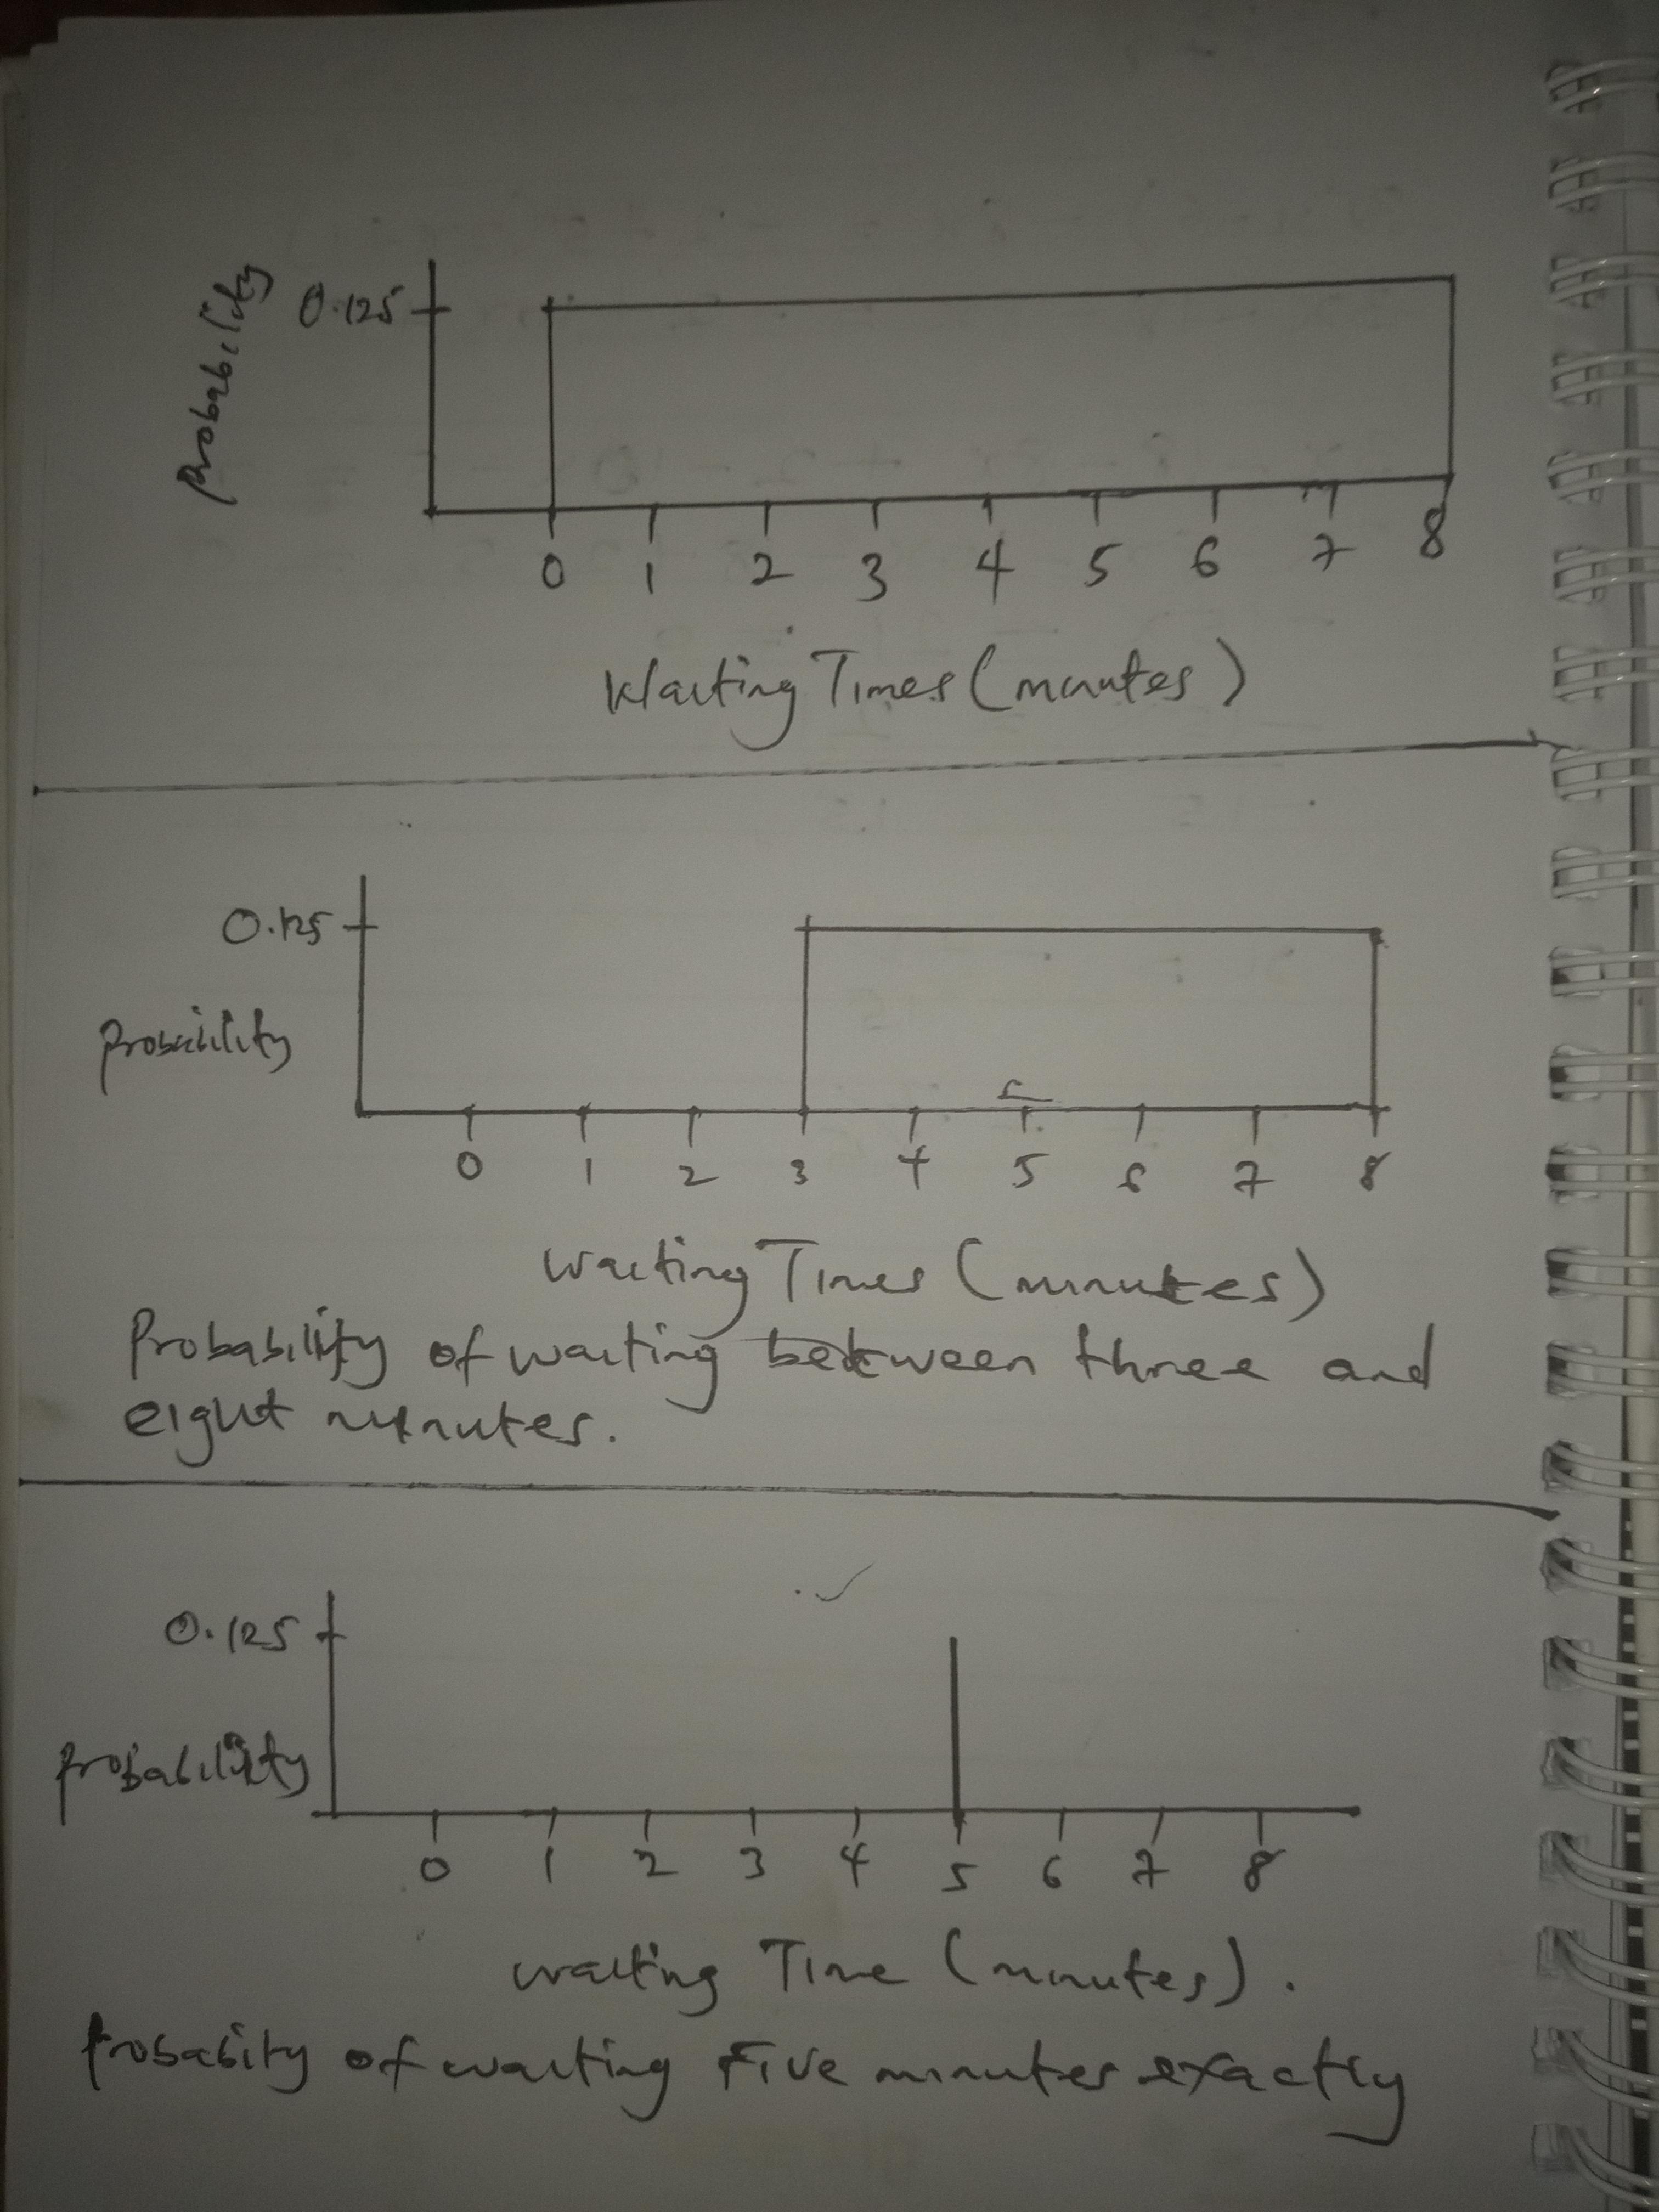 Probability
0.125
0 1 2 3 4 5 6 7 8
Waiting Times (minutes)
0.125
Probability
0 1 2 3 4 5 6 7 8
Waiting Times (minutes)
Probability of waiting between three and
eight minutes.
0.125
Probability
0 1 2 3 4 5 6 7 8
Waiting Time (minutes).
Probabity of waiting Five minutes exactly